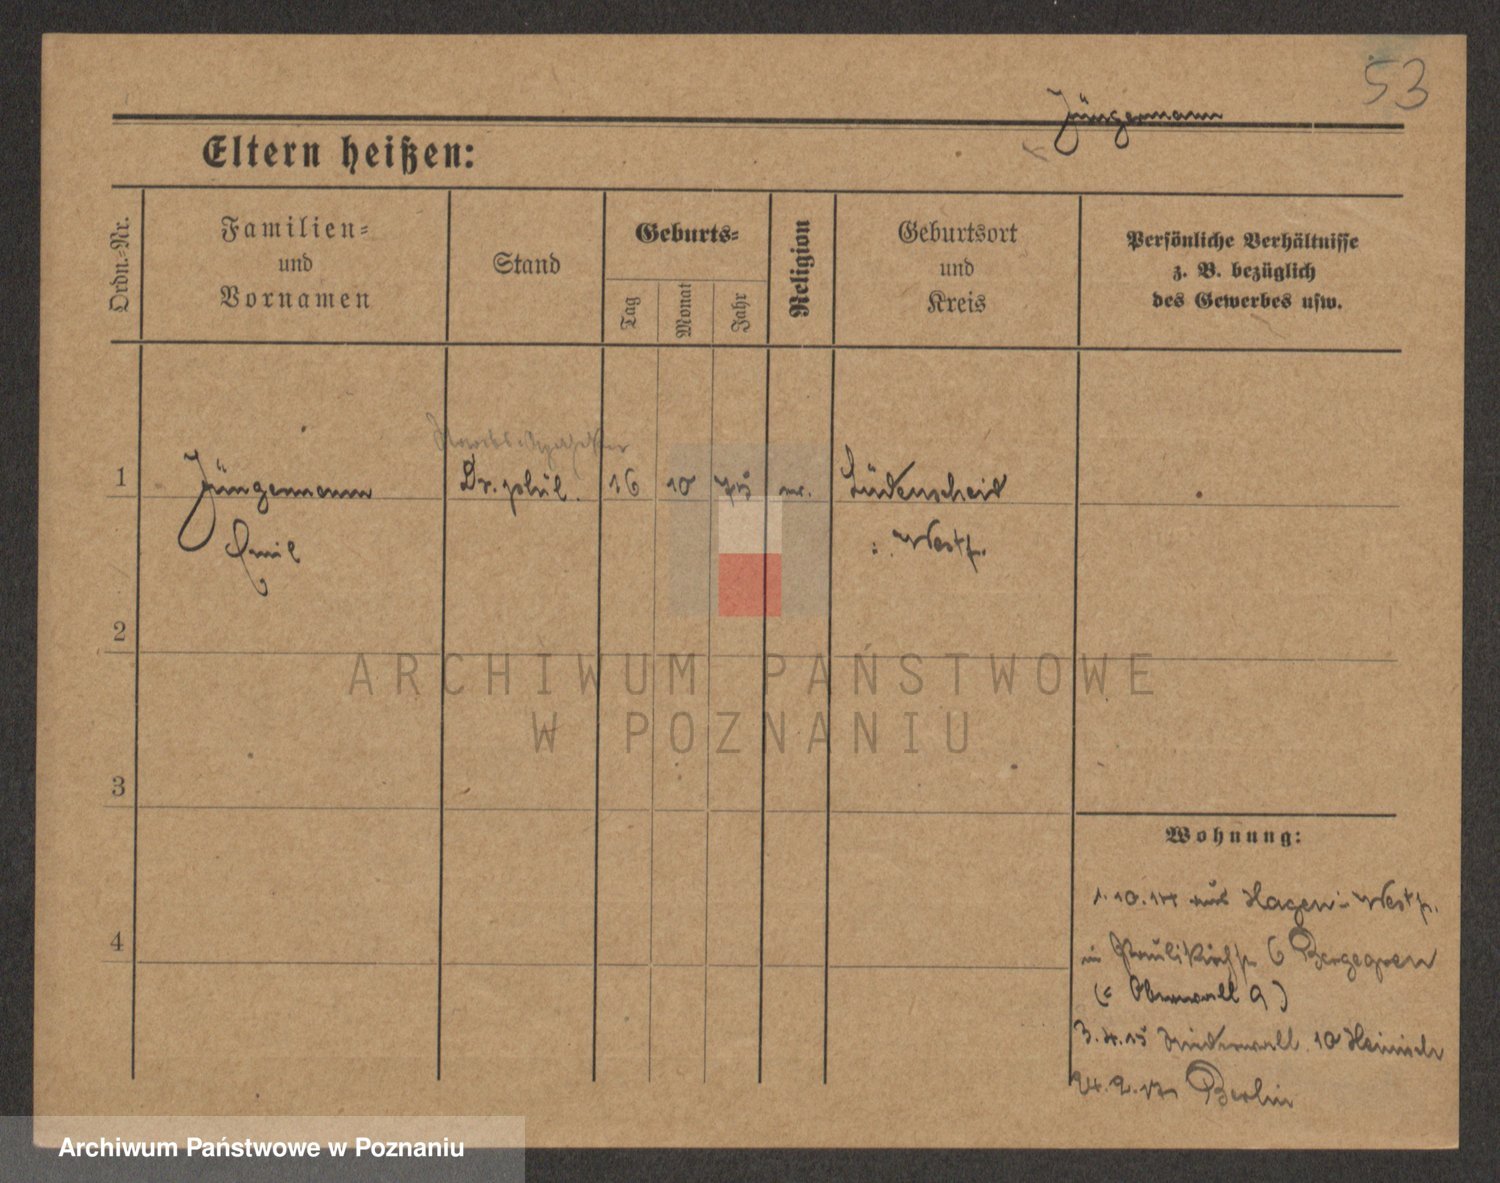 53
Jüngermann
Eltern heißen:
Ordn.-Nr.
Familien-
und
Vornamen
Stand
Geburts-
Tag
Monat
Jahr
Religion
Geburtsort
und
Kreis
Persönliche Verhältnisse
z. B. bezüglich
des Gewerbes usw.
1 Jüngermann Dr. phil. 16 10 75 ev. Lüdenscheid
Emil i. Westf.
2
3
4
Wohnung:
1.10.14 aus Hagen i. Westf.
in Paulikirchstr 6
(= Oberwall 9)
3.4.15 Niederwall 10
24.2.17 Berlin
ARCHIWUM PAŃSTWOWE
W POZNANIU
Archiwum Państwowe w Poznaniu